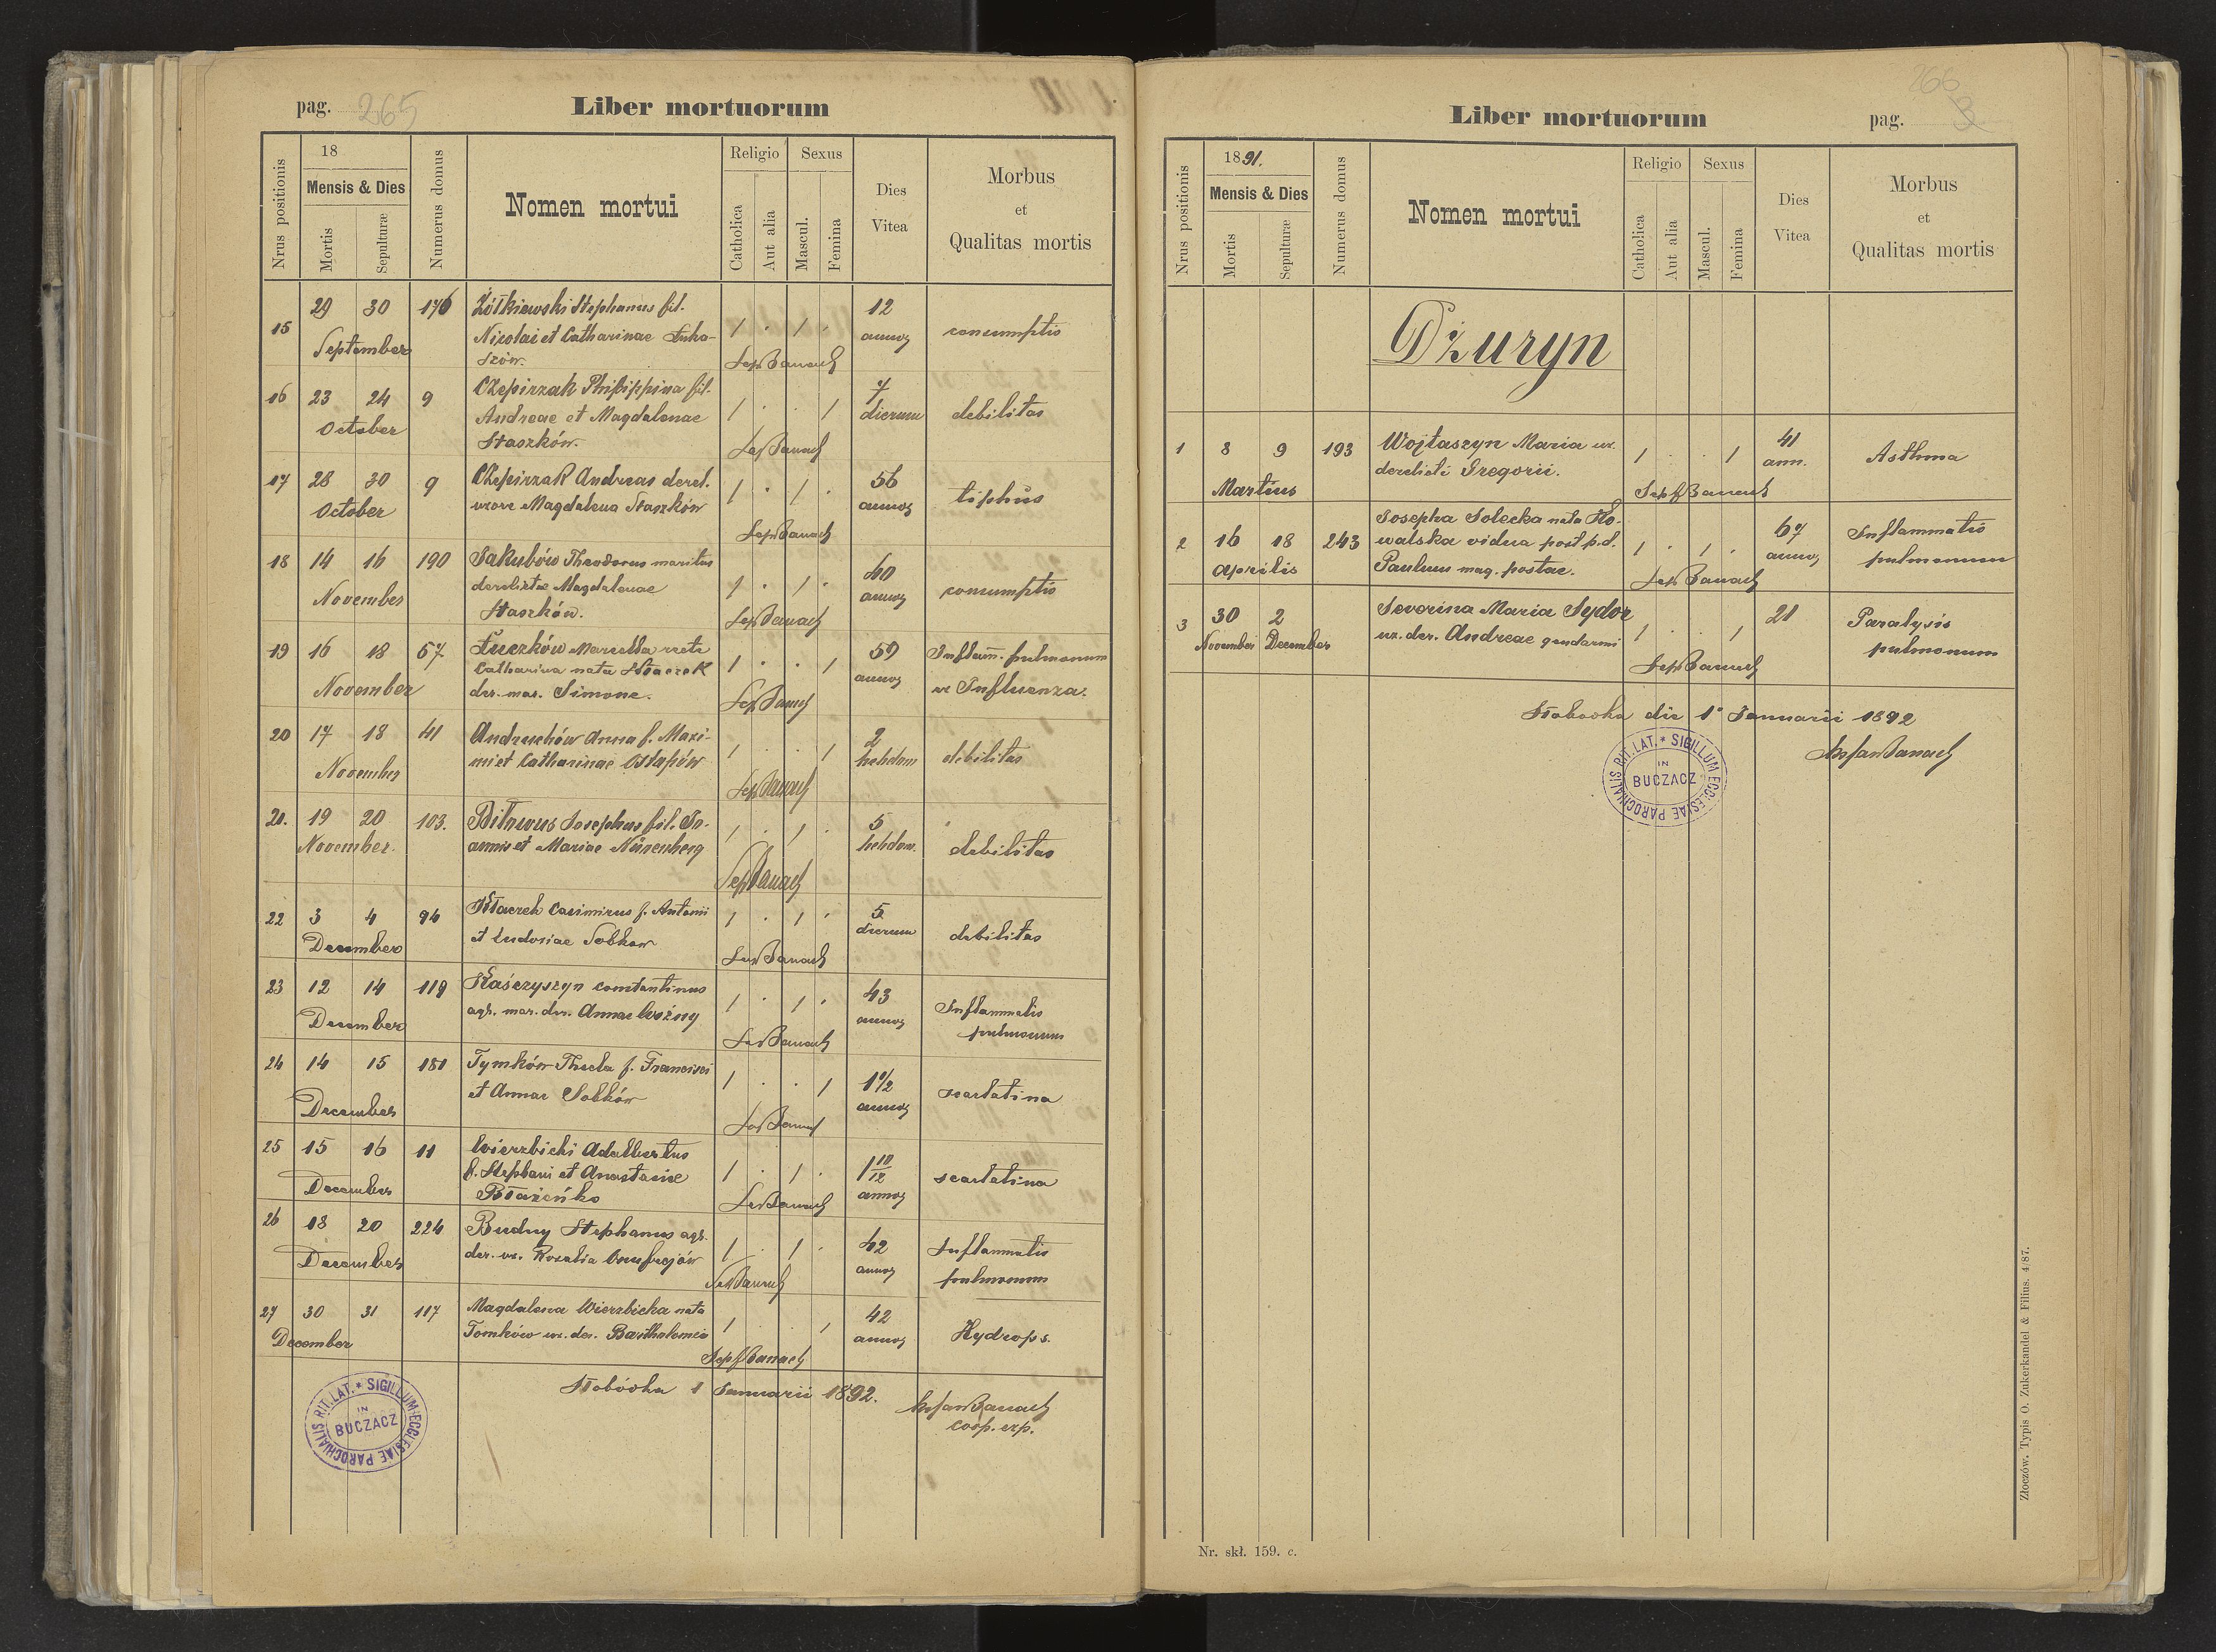 pag. 265
Liber mortuorum
Nrus positionis
18
Mensis & Dies
Mortis
Sepulturæ
Numerus domus
Nomen mortui
Religio
Catholica
Aut alia
Sexus
Mascul.
Femina
Dies
Vitea
Morbus
et
Qualitas mortis
15 29 30 176 Żółkiewski Stephanus fil. 12
September Nicolai et Catharinae Łuka- 1 . 1 . annor consumptio
szów.
Sep Banach
16 23 24 9 Czepirzak Philippina fil. 7
October Andreae et Magdalenae 1 . . 1 dierum debilitas
Staszków.
Sep Banach
17 28 30 9 Czepirzak Andreas derel. 1 . 1 . 56
October uxore Magdalena Staszków annor tiphus
Sep Banach
18 14 16 190 Jakubów Theodorus maritus 40
November derelictae Magdalenae 1 . 1 . annor consumptio
Staszków.
Sep Banach
19 16 18 67 Łuczków Marcella recte 59 Inflam. pulmonum
November Catharina nata Kłaczek 1 . . 1 annor
der. mar. Simone. ex Influenza.
Sep Banach
20 17 18 41 Andruchów Anna f. Maxi- 1 . . 1 2
November mi et Catharinae Ostapów hebdom debilitas
Sep Banach
21. 19 20 103. Josephus fil. Jo- 1 . 1 . 5
November. annis et Mariae Nürenberg hebdom. debilitas
Sep Banach
22 3 4 94 Kłaczek Casimirus f. Antonii 1 . 1 . 5
December et Eudoxiae Sobkow dierum debilitas
Sep Banach
23 12 14 119 Kaśczyszyn Constantinus 1 . 1 . 43 Inflammatio
December agr. mar. der. Annae Woźny annor pulmonum
Sep Banach
24 14 15 181 Tymków Thecla f. Francisci 1 . . 1 1 1/2
December et Annae Sobków annor scarlatina
Sep Banach
25 15 16 11 Wierzbicki Adalbertus 1 10/12
December f. Stephani et Anastasiae 1 . 1 . annor scarlatina
Błażeńko
Sep Banach
26 18 20 224 Budny Stephanus agr. 1 . 1 . 42 Inflammatio
December der. ux. Rosalia Onufrejów annor pulmonum
Sep Banach
27 30 31 117 Magdalena Wierzbicka nata 1 . . 1 42
December Tomków ux. der. Bartholomeo annor Hydrops.
Sep Banach
Słobódka 1 Januarii 1892. Banach
coop. exp.
SIGILLUM ECCLESIAE PAROCHIALIS RIT. LAT. *
IN
BUCZACZ
266
Liber mortuorum
pag. 3
Nrus positionis
1891.
Mensis & Dies
Mortis
Sepulturæ
Numerus domus
Nomen mortui
Religio
Catholica
Aut alia
Sexus
Mascul.
Femina
Dies
Vitea
Morbus
et
Qualitas mortis
Dżuryn
1 8 9 193 Wojtaszyn Maria ux. 1 . . 1 41
Martius derelicti Gregorii. ann. Asthma
Sep Banach
2 16 18 243 Josepha Solecka nata Ko- 67 Inflammatio
Aprilis walska vidua post p.d. 1 . 1 . annor pulmonum
Paulum mag. postae.
Sep Banach
3 30 2 Severina Maria Sydor 21 Paralysis
November December ux. der. Andreae gendarmi 1 . 1 pulmonum
Sep Banach
Słobodka die 1 Januarii 1892
Banach
SIGILLUM ECCLESIAE PAROCHIALIS RIT. LAT. *
IN
BUCZACZ
Nr. skł. 159. c.
Złoczów. Typis O. Zukerkandel & Filius. 4/87.